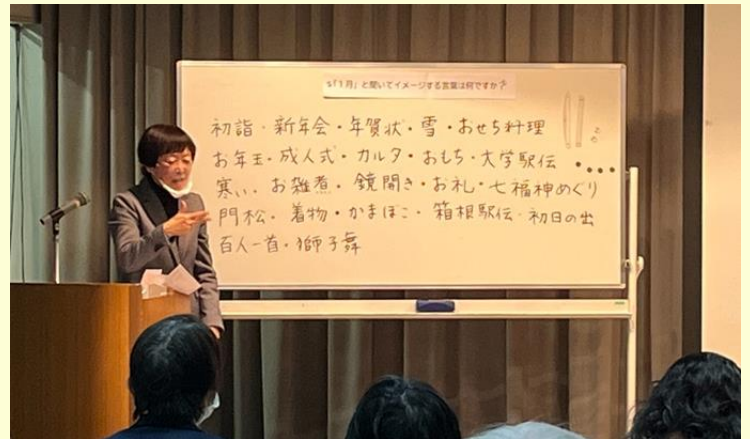 「1月」と聞いてイメージする言葉は何ですか?
初詣・新年会・年賀状・雪・おせち料理
お年玉・成人式・カルタ・おもち・大学駅伝
寒い・お雑煮・鏡開き・お礼・七福神めぐり
門松・着物・かまぼこ・箱根駅伝・初日の出
百人一首・獅子舞